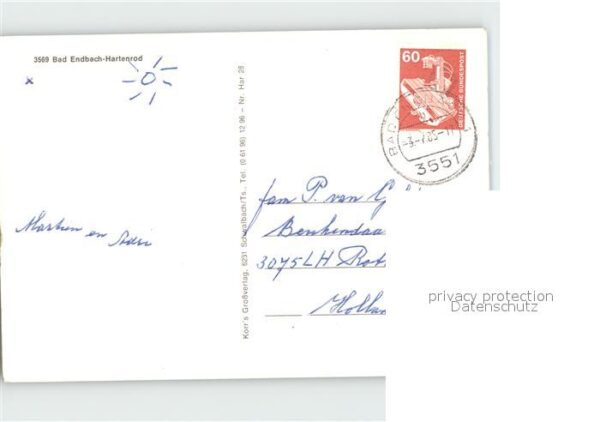 3569 Bad Endbach-Hartenrod
x
Korr's Großverlag, 6231 Schwalbach/Ts., Tel. (0 61 96) 12 96 – Nr. Har 26
60
DEUTSCHE BUNDESPOST
BAD
3551
fam P. van G
3075LH Rot
Holla
en
privacy protection
Datenschutz